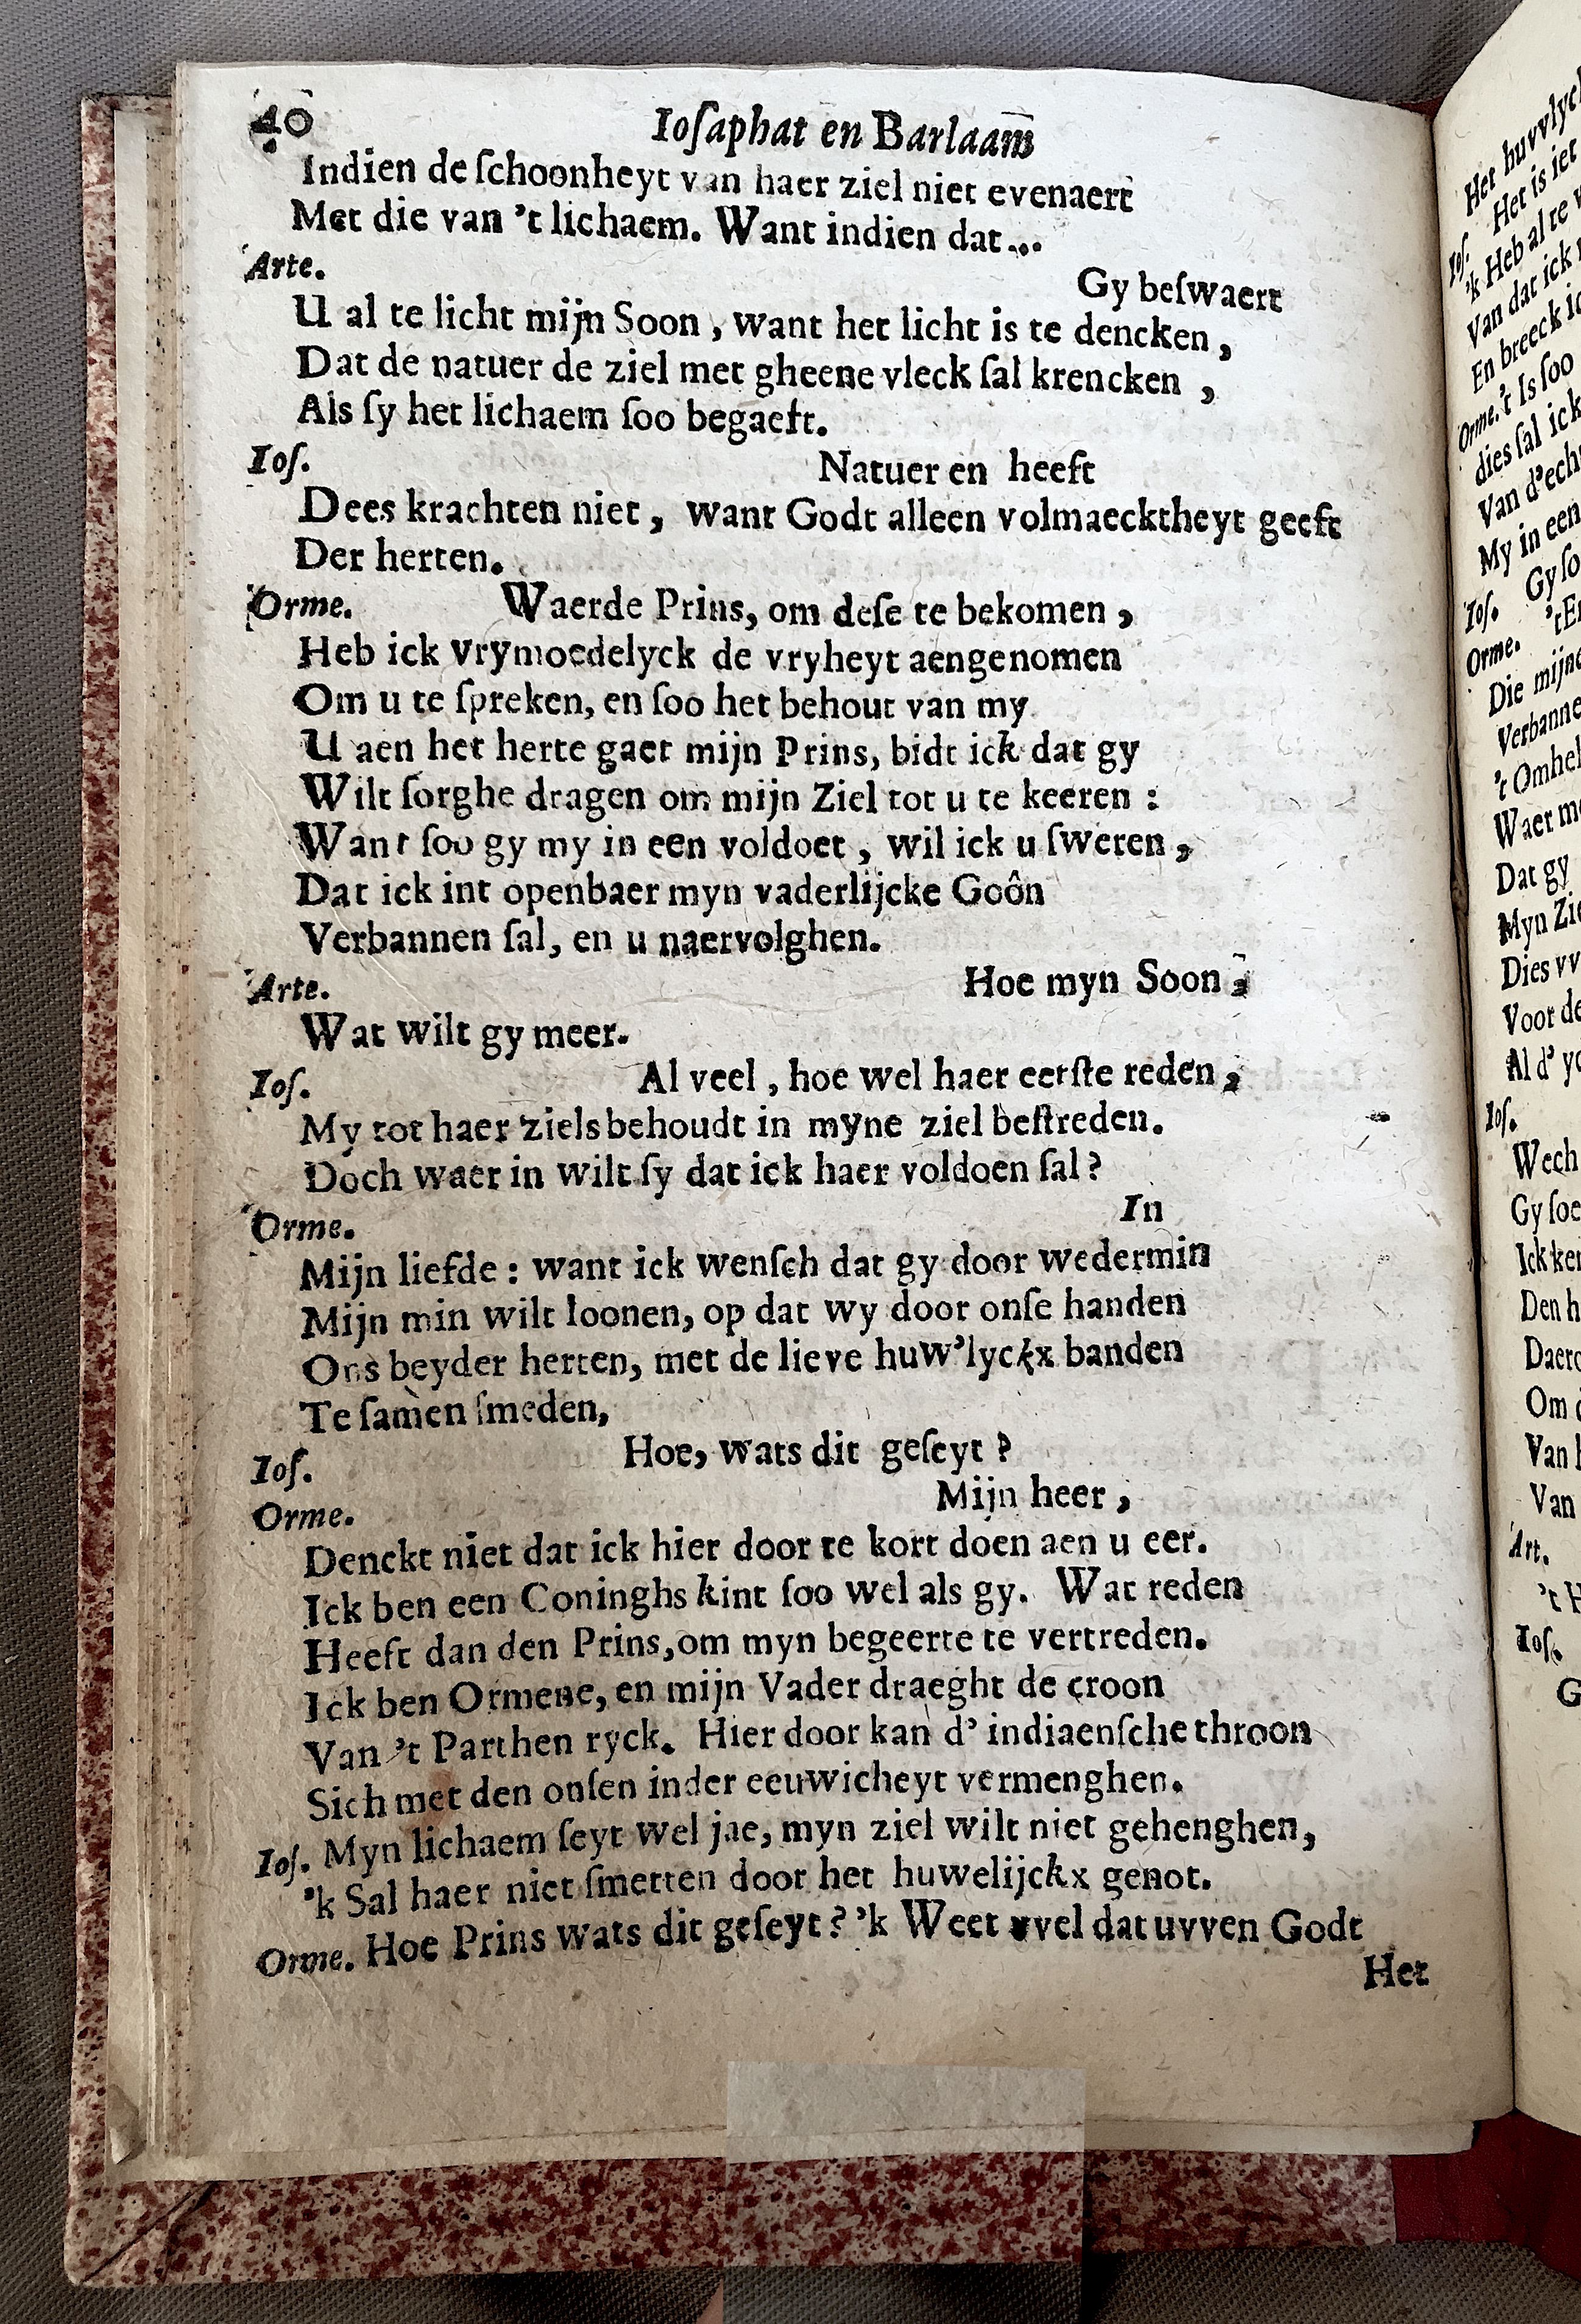 40 Ioſaphat en Barlaam̅
Indien de ſchoonheyt van haer ziel niet evenaert
Met die van 't lichaem. Want indien dat...
Arte.
Gy beſwaert
U al te licht mijn Soon, want het licht is te dencken,
Dat de natuer de ziel met gheene vleck ſal krencken,
Als ſy het lichaem ſoo begaeft.
Ioſ.
Natuer en heeft
Dees krachten niet, want Godt alleen volmaecktheyt geeft
Der herten.
Orme. Waerde Prins, om deſe te bekomen,
Heb ick vrymoedelyck de vryheyt aengenomen
Om u te ſpreken, en ſoo het behout van my
U aen het herte gaet mijn Prins, bidt ick dat gy
Wilt ſorghe dragen om mijn Ziel tot u te keeren:
Want ſoo gy my in een voldoet, wil ick u ſweren,
Dat ick int openbaer myn vaderlijcke Goôn
Verbannen ſal, en u naervolghen.
Arte. Hoe myn Soon,
Wat wilt gy meer.
Ioſ. Al veel, hoe wel haer eerſte reden,
My tot haer ziels behoudt in myne ziel beſtreden.
Doch waer in wilt ſy dat ick haer voldoen ſal?
In
Orme.
Mijn liefde: want ick wenſch dat gy door wedermin
Mijn min wilt loonen, op dat wy door onſe handen
Ons beyder herten, met de lieve huw'lyckx banden
Te ſamen ſmeden,
Ioſ. Hoe, wats dit geſeyt?
Orme. Mijn heer,
Denckt niet dat ick hier door te kort doen aen u eer.
Ick ben een Coninghs kint ſoo wel als gy. Wat reden
Heeft dan den Prins, om myn begeerte te vertreden.
Ick ben Ormene, en mijn Vader draeght de croon
Van 't Parthen ryck. Hier door kan d' indiaenſche throon
Sich met den onſen inder eeuwicheyt vermenghen.
Ioſ. Myn lichaem ſeyt wel jae, myn ziel wilt niet gehenghen,
'k Sal haer niet ſmetten door het huwelijckx genot.
Orme. Hoe Prins wats dit geſeyt? 'k Weet vvel dat uvven Godt
Het
Het huvvlyck
Het is iet
Ioſ. 'k Heb al te
Van dat ick
En breeck
Orme. 't Is ſoo
dies ſal ick
Van d'
My in een
Gy
Ioſ.
Orme.
Die
Verbanne
't
Waer
Dat gy
Myn
Dies
Voor
Al d'
Ioſ.
Wech
Gy
Ick
Den
Om
Van
Van
Art.
't
Ioſ.
G